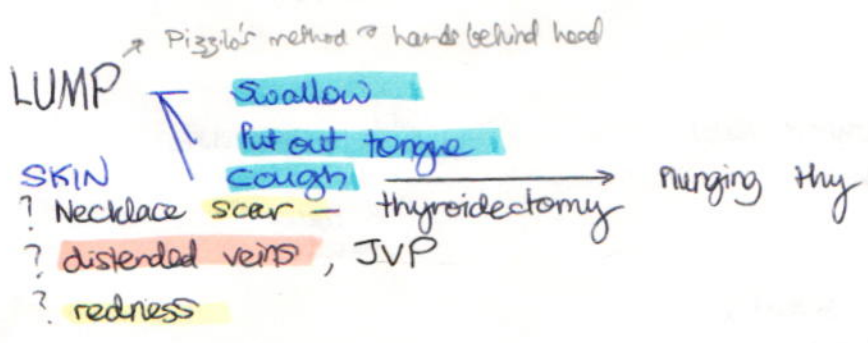 → Pizzilo's method → hands behind head
LUMP
Swallow
Put out tongue
SKIN
cough → plunging thy
? Necklace scar — thyroidectomy
? distended veins, JVP
? redness